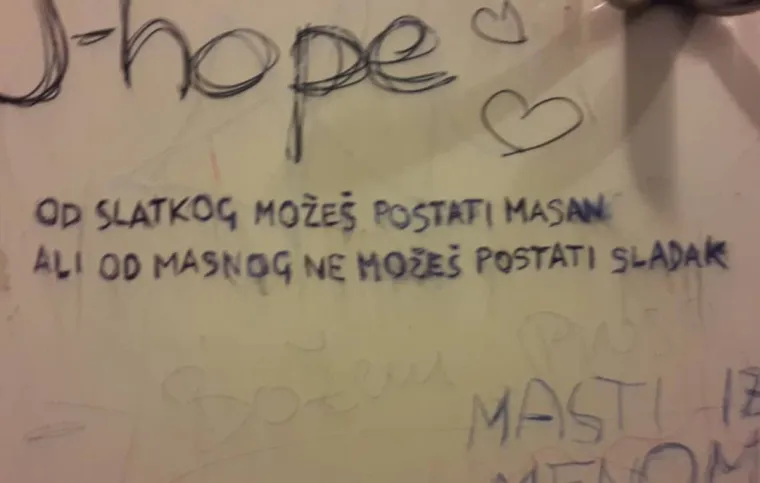 J-hope
OD SLATKOG MOŽEŠ POSTATI MASAN
ALI OD MASNOG NE MOŽEŠ POSTATI SLADAK
MASTI IZ
MENOM